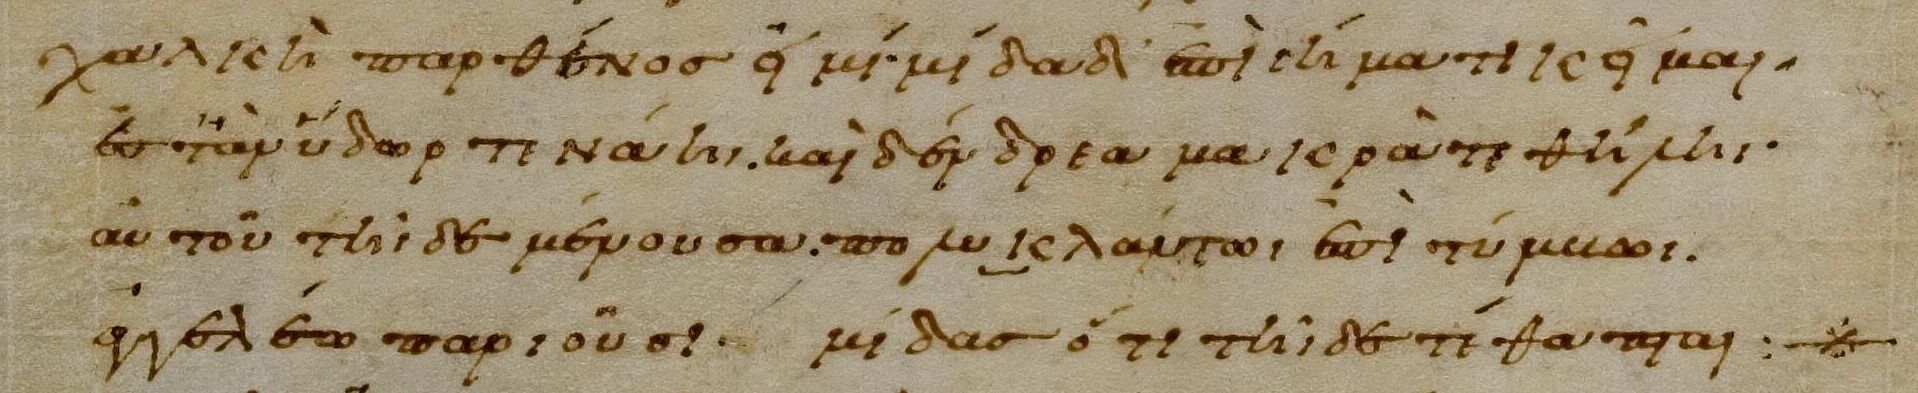 χαλκῆ παρθένος εἰμί· μίδα δ' ἐπὶ σήματι κεῖμαι.
ἔστ' ἂν ὕδωρ τε νάηι. καὶ δένδρεα μακρὰ τεθήληι·
αὐτοῦ τῆιδε μένουσα. πολυκλαύτωι ἐπὶ τύμβωι.
ἀγγελέω παριοῦσι· μίδας ὅτι τῆιδε τέθαπται: